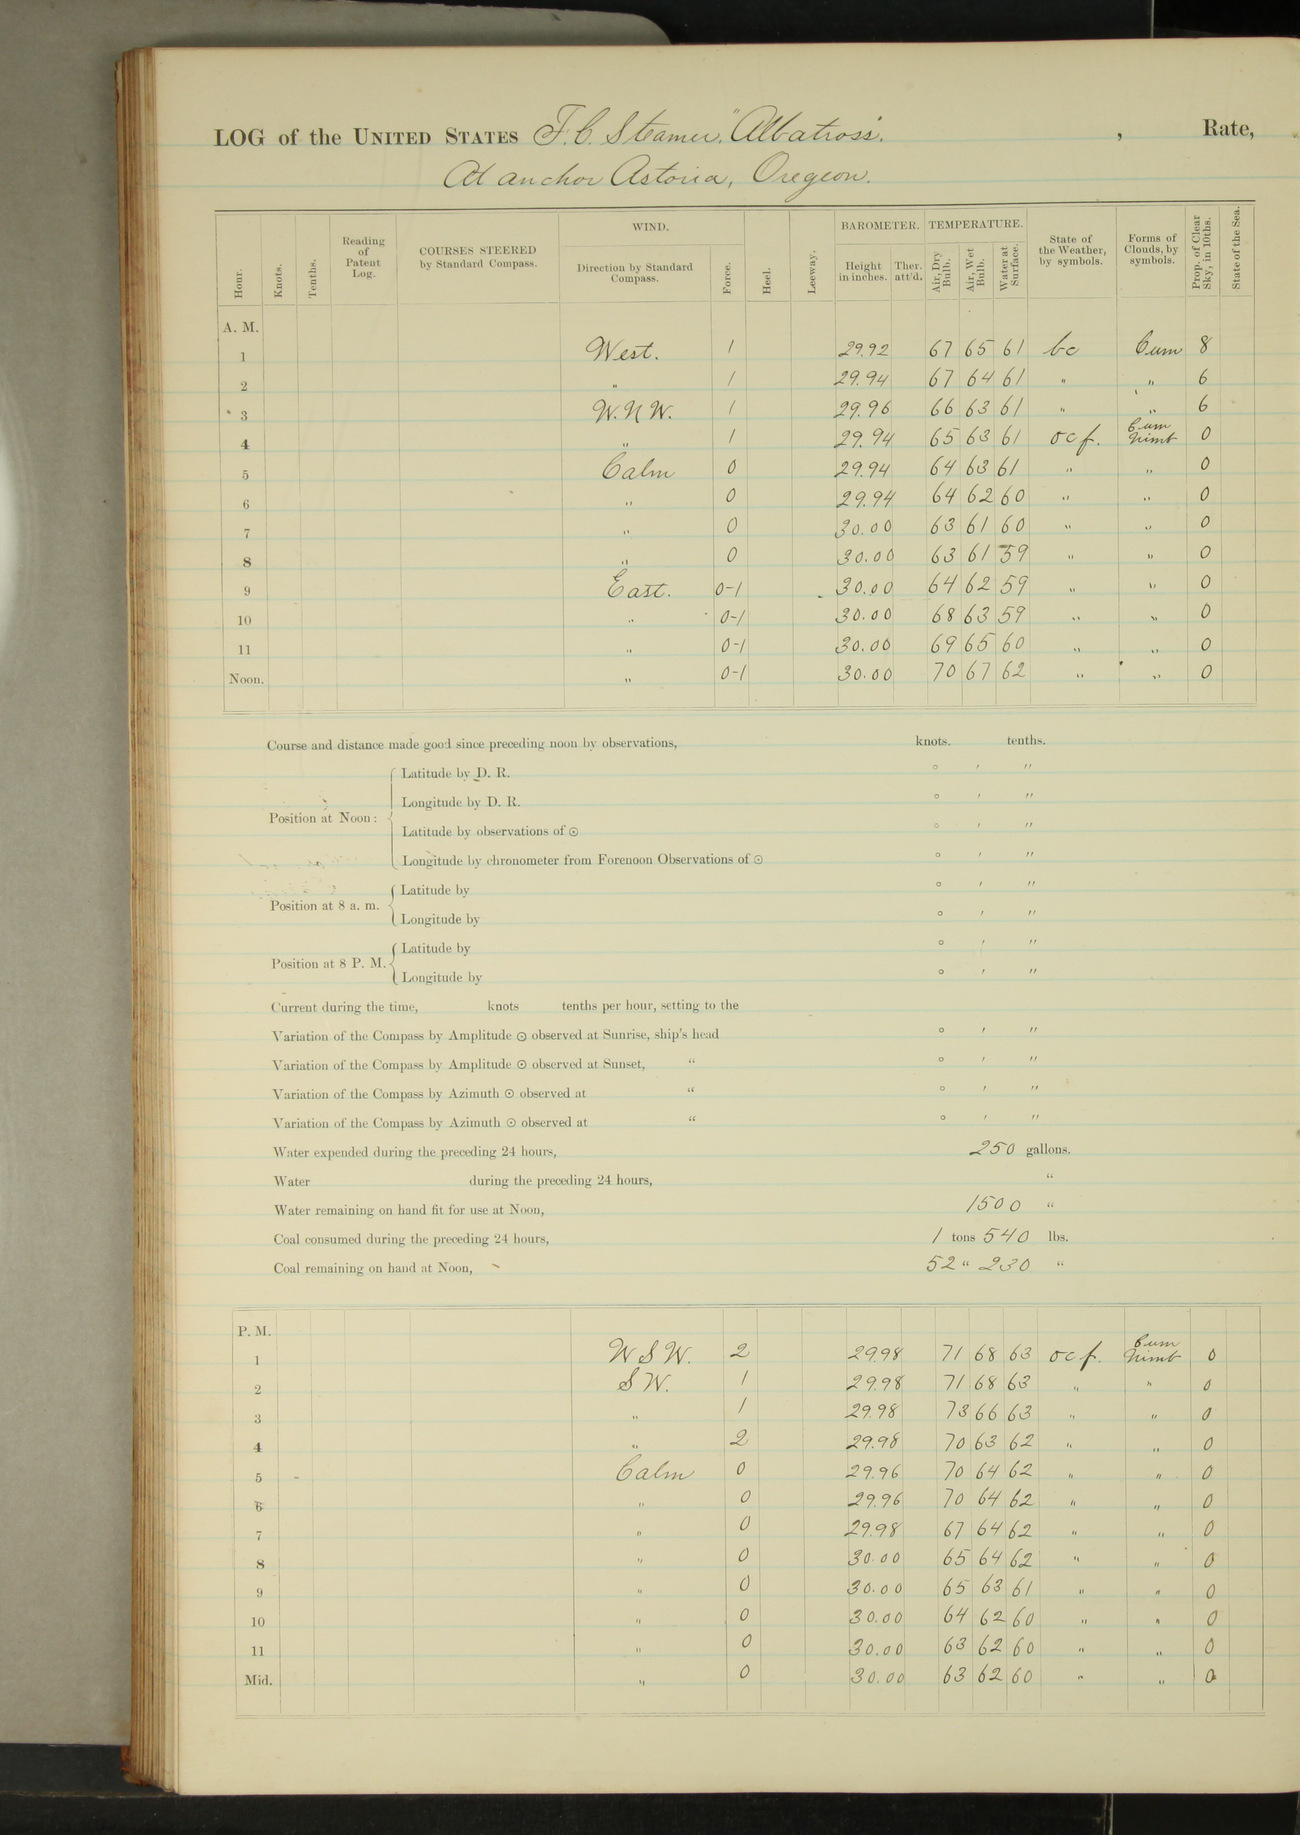 LOG of the UNITED STATES F. C. Steamer "Albatross". , Rate,
At anchor Astoria, Oregeon.
Hour. Knots. Tenths. Reading of Patent Log. COURSES STEERED by Standard Compass. WIND. Direction by Standard Compass. Force. Heel. Leeway. BAROMETER. Height in inches. Ther. att'd. TEMPERATURE. Air, Dry Bulb. Air, Wet Bulb. Water at Surface. State of the Weather, by symbols. Forms of Clouds, by symbols. Prop. of Clear Sky, in 10ths. State of the Sea.
A. M.
1 West. 1 29.92 67 65 61 bc Cum 8
2 " 1 29.94 67 64 61 " " 6
3 W.N.W. 1 29.96 66 63 61 " " 6
4 " 1 29.94 65 63 61 ocf. Cum Nimb 0
5 Calm 0 29.94 64 63 61 " " 0
6 " 0 29.94 64 62 60 " " 0
7 " 0 30.00 63 61 60 " " 0
8 " 0 30.00 63 61 59 " " 0
9 East. 0-1 30.00 64 62 59 " " 0
10 " 0-1 30.00 68 63 59 " " 0
11 " 0-1 30.00 69 65 60 " " 0
Noon. " 0-1 30.00 70 67 62 " " 0
Course and distance made good since preceding noon by observations, knots. tenths.
Latitude by D. R. ° ′ ″
Longitude by D. R. ° ′ ″
Position at Noon:
Latitude by observations of ☉ ° ′ ″
Longitude by chronometer from Forenoon Observations of ☉ ° ′ ″
Latitude by ° ′ ″
Position at 8 a. m.
Longitude by ° ′ ″
Latitude by ° ′ ″
Position at 8 P. M.
Longitude by ° ′ ″
Current during the time, knots tenths per hour, setting to the
Variation of the Compass by Amplitude ☉ observed at Sunrise, ship's head ° ′ ″
Variation of the Compass by Amplitude ☉ observed at Sunset, " ° ′ ″
Variation of the Compass by Azimuth ☉ observed at " ° ′ ″
Variation of the Compass by Azimuth ☉ observed at " ° ′ ″
Water expended during the preceding 24 hours, 250 gallons.
Water during the preceding 24 hours, "
Water remaining on hand fit for use at Noon, 1500 "
Coal consumed during the preceding 24 hours, 1 tons 540 lbs.
Coal remaining on hand at Noon, 52 " 230 "
P. M.
1 W S W. 2 29.98 71 68 63 ocf. Cum Nimb 0
2 S W. 1 29.98 71 68 63 " " 0
3 " 1 29.98 73 66 63 " " 0
4 " 2 29.98 70 63 62 " " 0
5 Calm 0 29.96 70 64 62 " " 0
6 " 0 29.96 70 64 62 " " 0
7 " 0 29.98 67 64 62 " " 0
8 " 0 30.00 65 64 62 " " 0
9 " 0 30.00 65 63 61 " " 0
10 " 0 30.00 64 62 60 " " 0
11 " 0 30.00 63 62 60 " " 0
Mid. " 0 30.00 63 62 60 " " 0